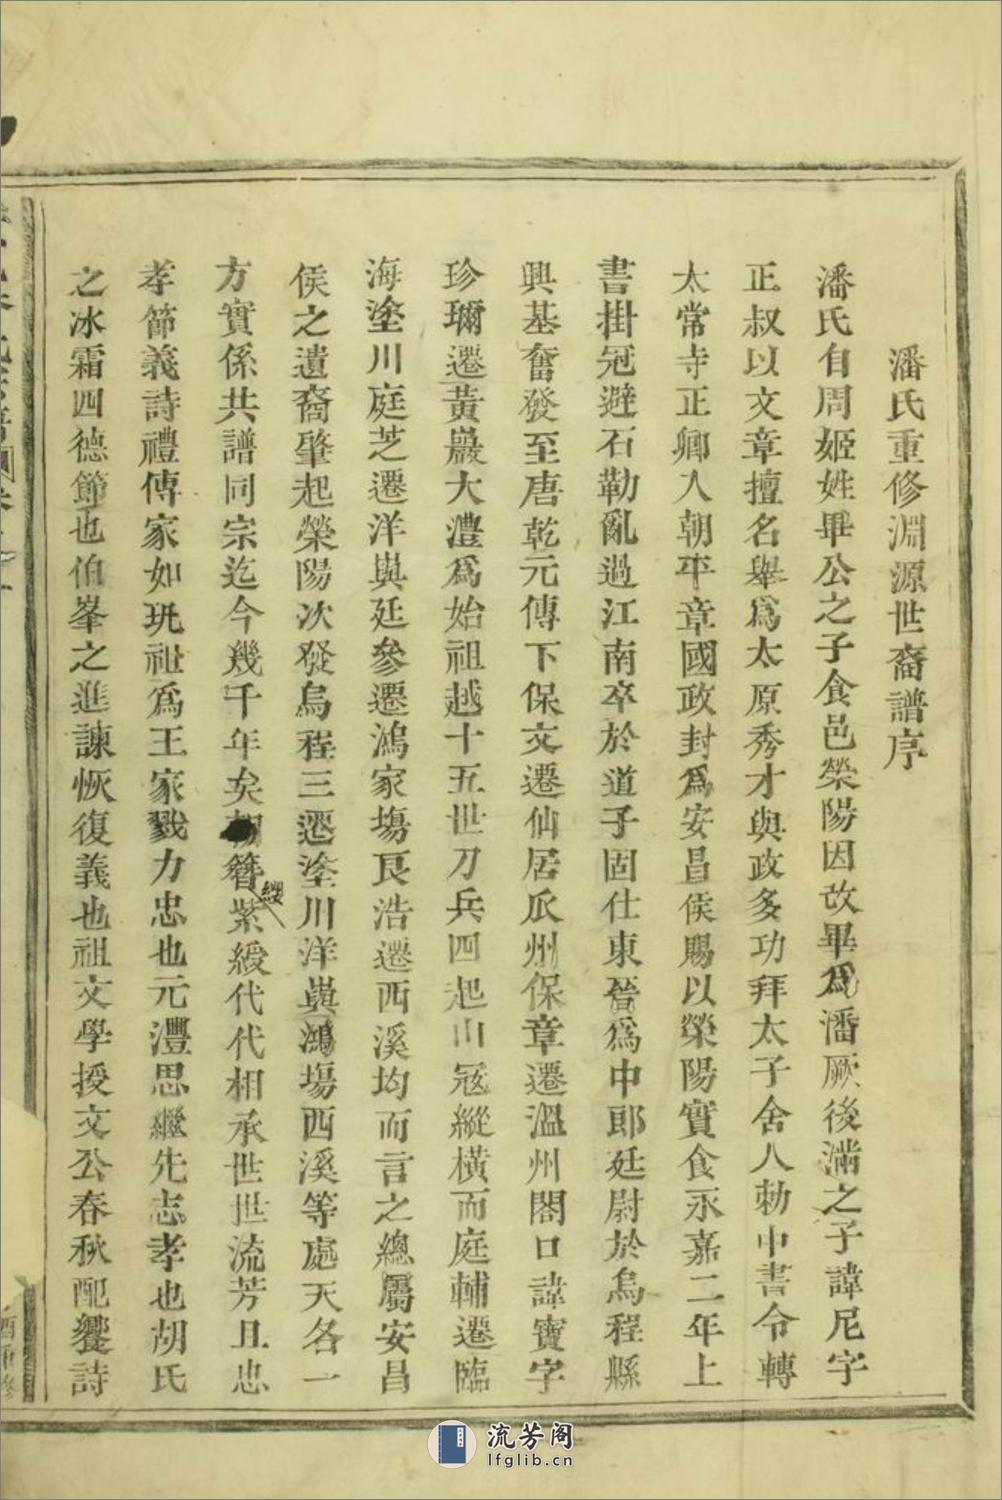 潘氏重修淵源世裔譜序
潘氏自周姬姓畢公之子食邑榮陽因改畢爲潘厥後滿之子諱尼字
正叔以文章擅名舉爲太原秀才與政多功拜太子舍人勅中書令轉
太常寺正卿入朝平章國政封爲安昌侯賜以榮陽實食永嘉二年上
書掛冠避石勒亂過江南卒於道子固仕東晉爲中郎廷尉於烏程縣
興基奮發至唐乾元傳下保文遷仙居瓜州保章遷溫州閣口諱寶字
珍璽遷黃巖大澧爲始祖越十五世刀兵四起山冦縱橫而庭輔遷臨
海塗川庭芝遷洋嶴廷參遷鴻家塲艮浩遷西溪均而言之總屬安昌
侯之遺裔肇起榮陽次發烏程三遷塗川洋嶴鴻塲西溪等處天各一
方實係共譜同宗迄今幾千年矣簪纓紫綬代代相承世世流芳且忠
孝節義詩禮傳家如玧祉爲王家戮力忠也元灃思繼先志孝也胡氏
之冰霜四德節也伯峯之進諫恢復義也祖文學授文公春秋配饗詩
酉重修
流芳阁
lfglib.cn